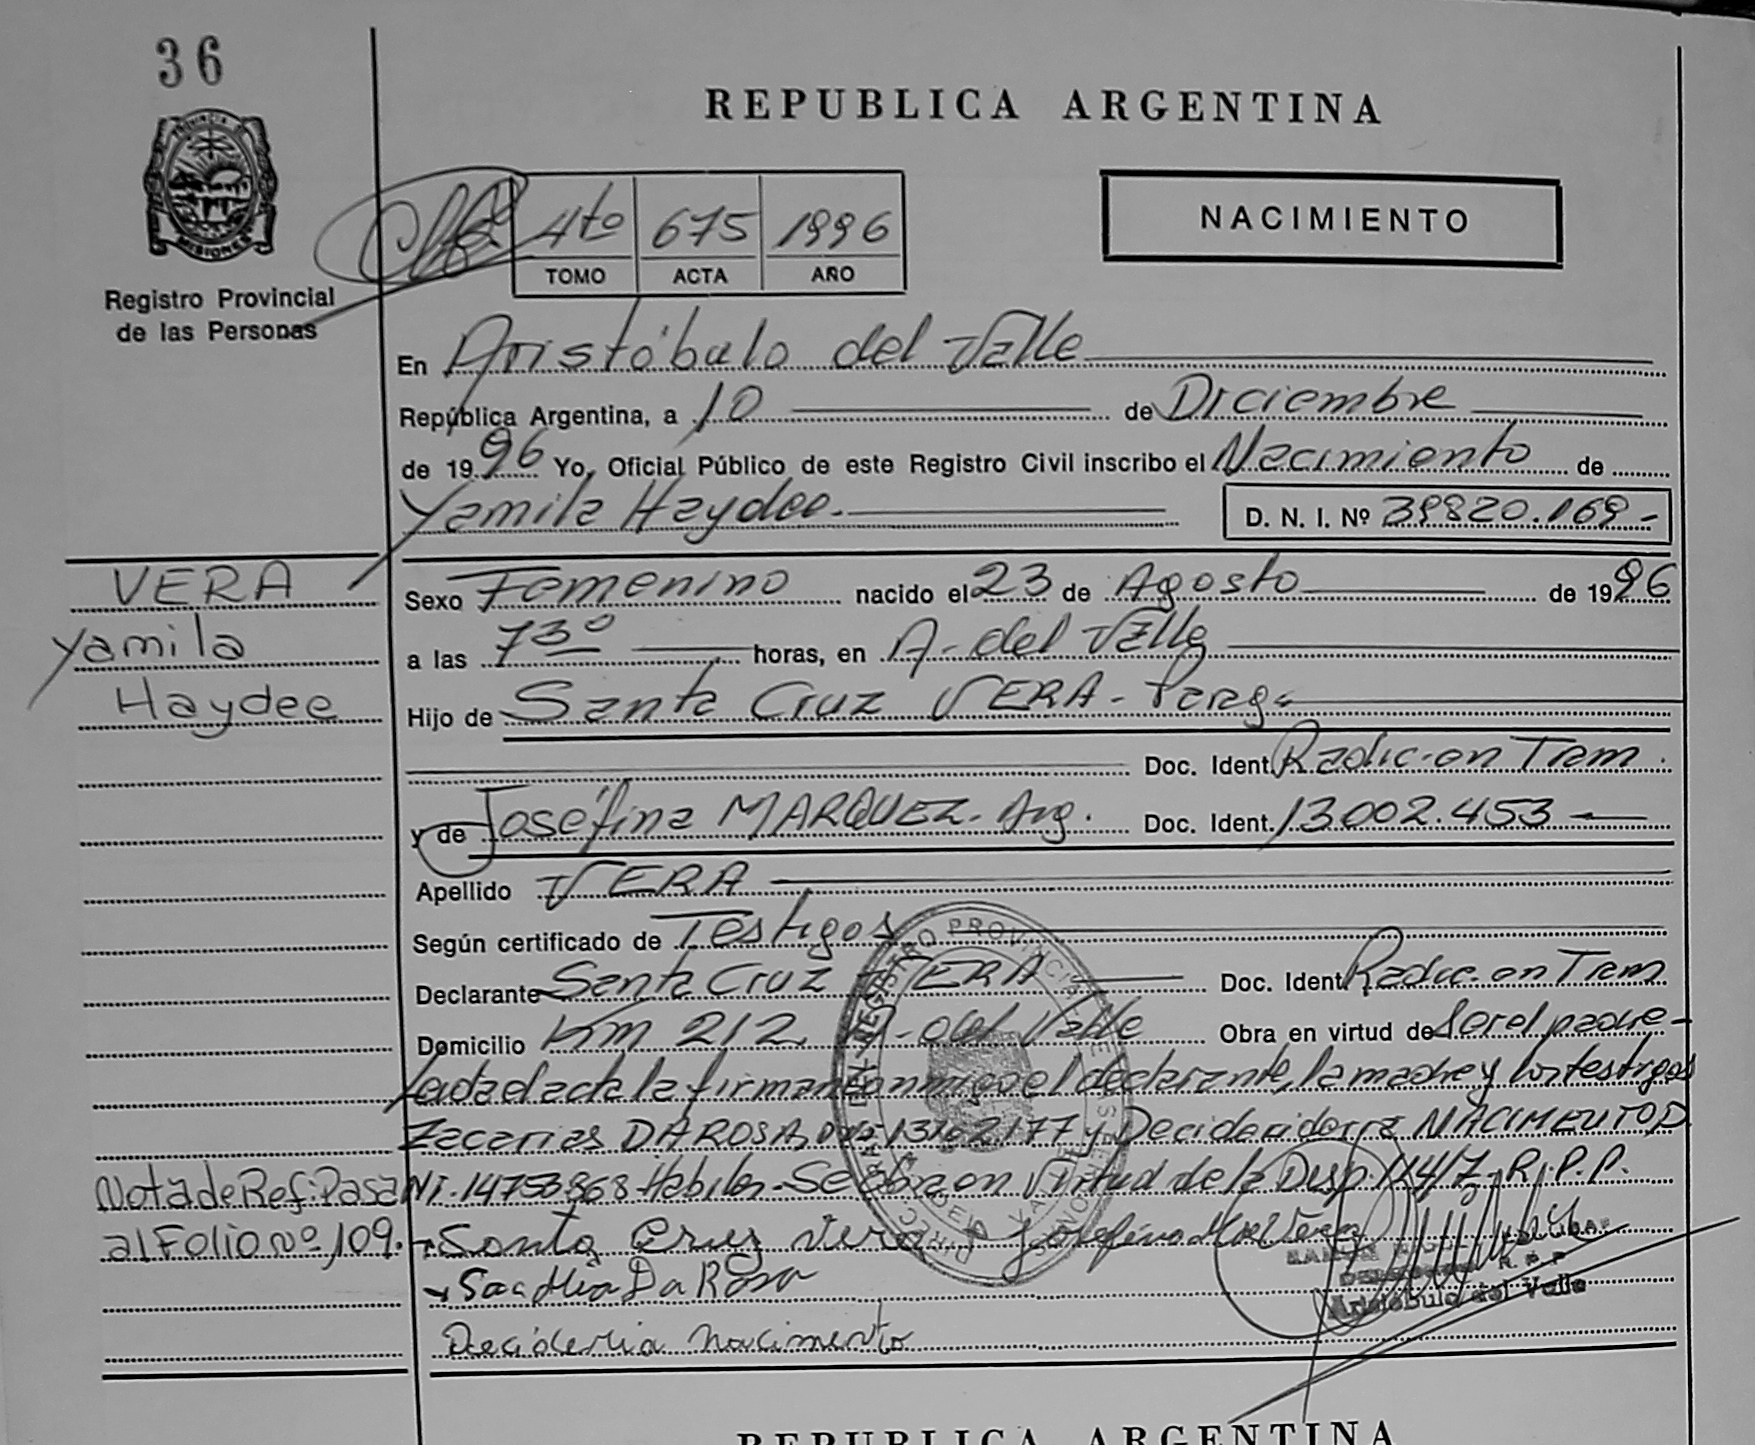 36
REPUBLICA ARGENTINA
PROVINCIA DE
MISIONES
Registro Provincial
de las Personas
4to 675 1996
TOMO ACTA AÑO
NACIMIENTO
En Aristóbulo del Valle
República Argentina, a 10 de Diciembre
de 1996 Yo, Oficial Público de este Registro Civil inscribo el Nacimiento de
Yamila Haydee.
D. N. I. Nº 39820.169-
VERA
Yamila
Haydee
Sexo Femenino nacido el 23 de Agosto de 1996
a las 7 30 horas, en A. del Valle
Hijo de Santa Cruz VERA-
Doc. Ident. Radic. en Tram.
y de Joséfina MARQUEZ. Arg. Doc. Ident. 13.002.453
Apellido VERA
Según certificado de Testigos
Declarante Santa Cruz VERA Doc. Ident. Radic. en Tram
Domicilio Km 212 A. del Valle Obra en virtud de Ser el padre-
Leida el acta la firman conmigo el declarante, la madre y los testigos
Zacarias DAROSA 13162177 y NACIMENTO D
Nota de Ref: Pasa
al Folio nº 109.
NI. 14753868 Habiles. Se labra en Virtud de la Disp. 114/7 R.P.P.
Santa Cruz Vera
Da Rosa
Decideria nacimento
R. P. P.
Aristóbulo del Valle
REPUBLICA ARGENTINA